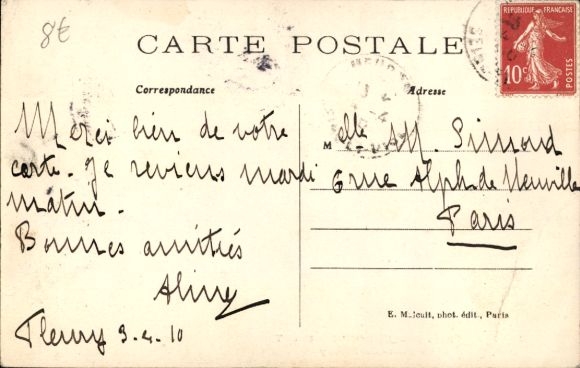 8€
CARTE POSTALE
REPUBLIQUE FRANÇAISE
10c
POSTES
Correspondance
Adresse
Merci bien de votre
carte. Je reviens mardi
matin.
Bonnes amitiés
Aliny
Fleury 3-4-10
Melle M. Simond
6 rue Alph. de Neuville
Paris
E. Malcuit, phot. édit., Paris